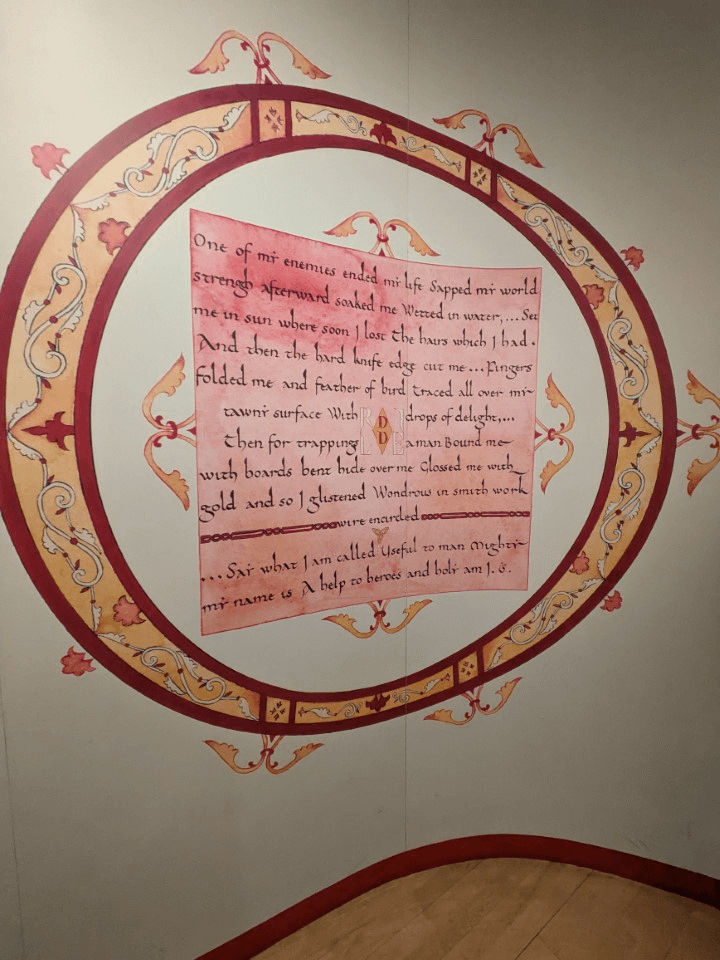 One of my enemies ended my life Sapped my world
strengh Afterward soaked me Wetted in water,...Set
me in sun where soon I lost the hairs which I had.
And then the hard knife edge cut me...Fingers
folded me and feather of bird Traced all over my
tawny surface With drops of delight,...
Then for trappings a man Bound me
with boards bent hide over me Glossed me with
gold and so I glistened Wondrous in smith work
wire encircled
...Say what I am called Useful to man Mighty
my name is A help to heroes and holy am I.